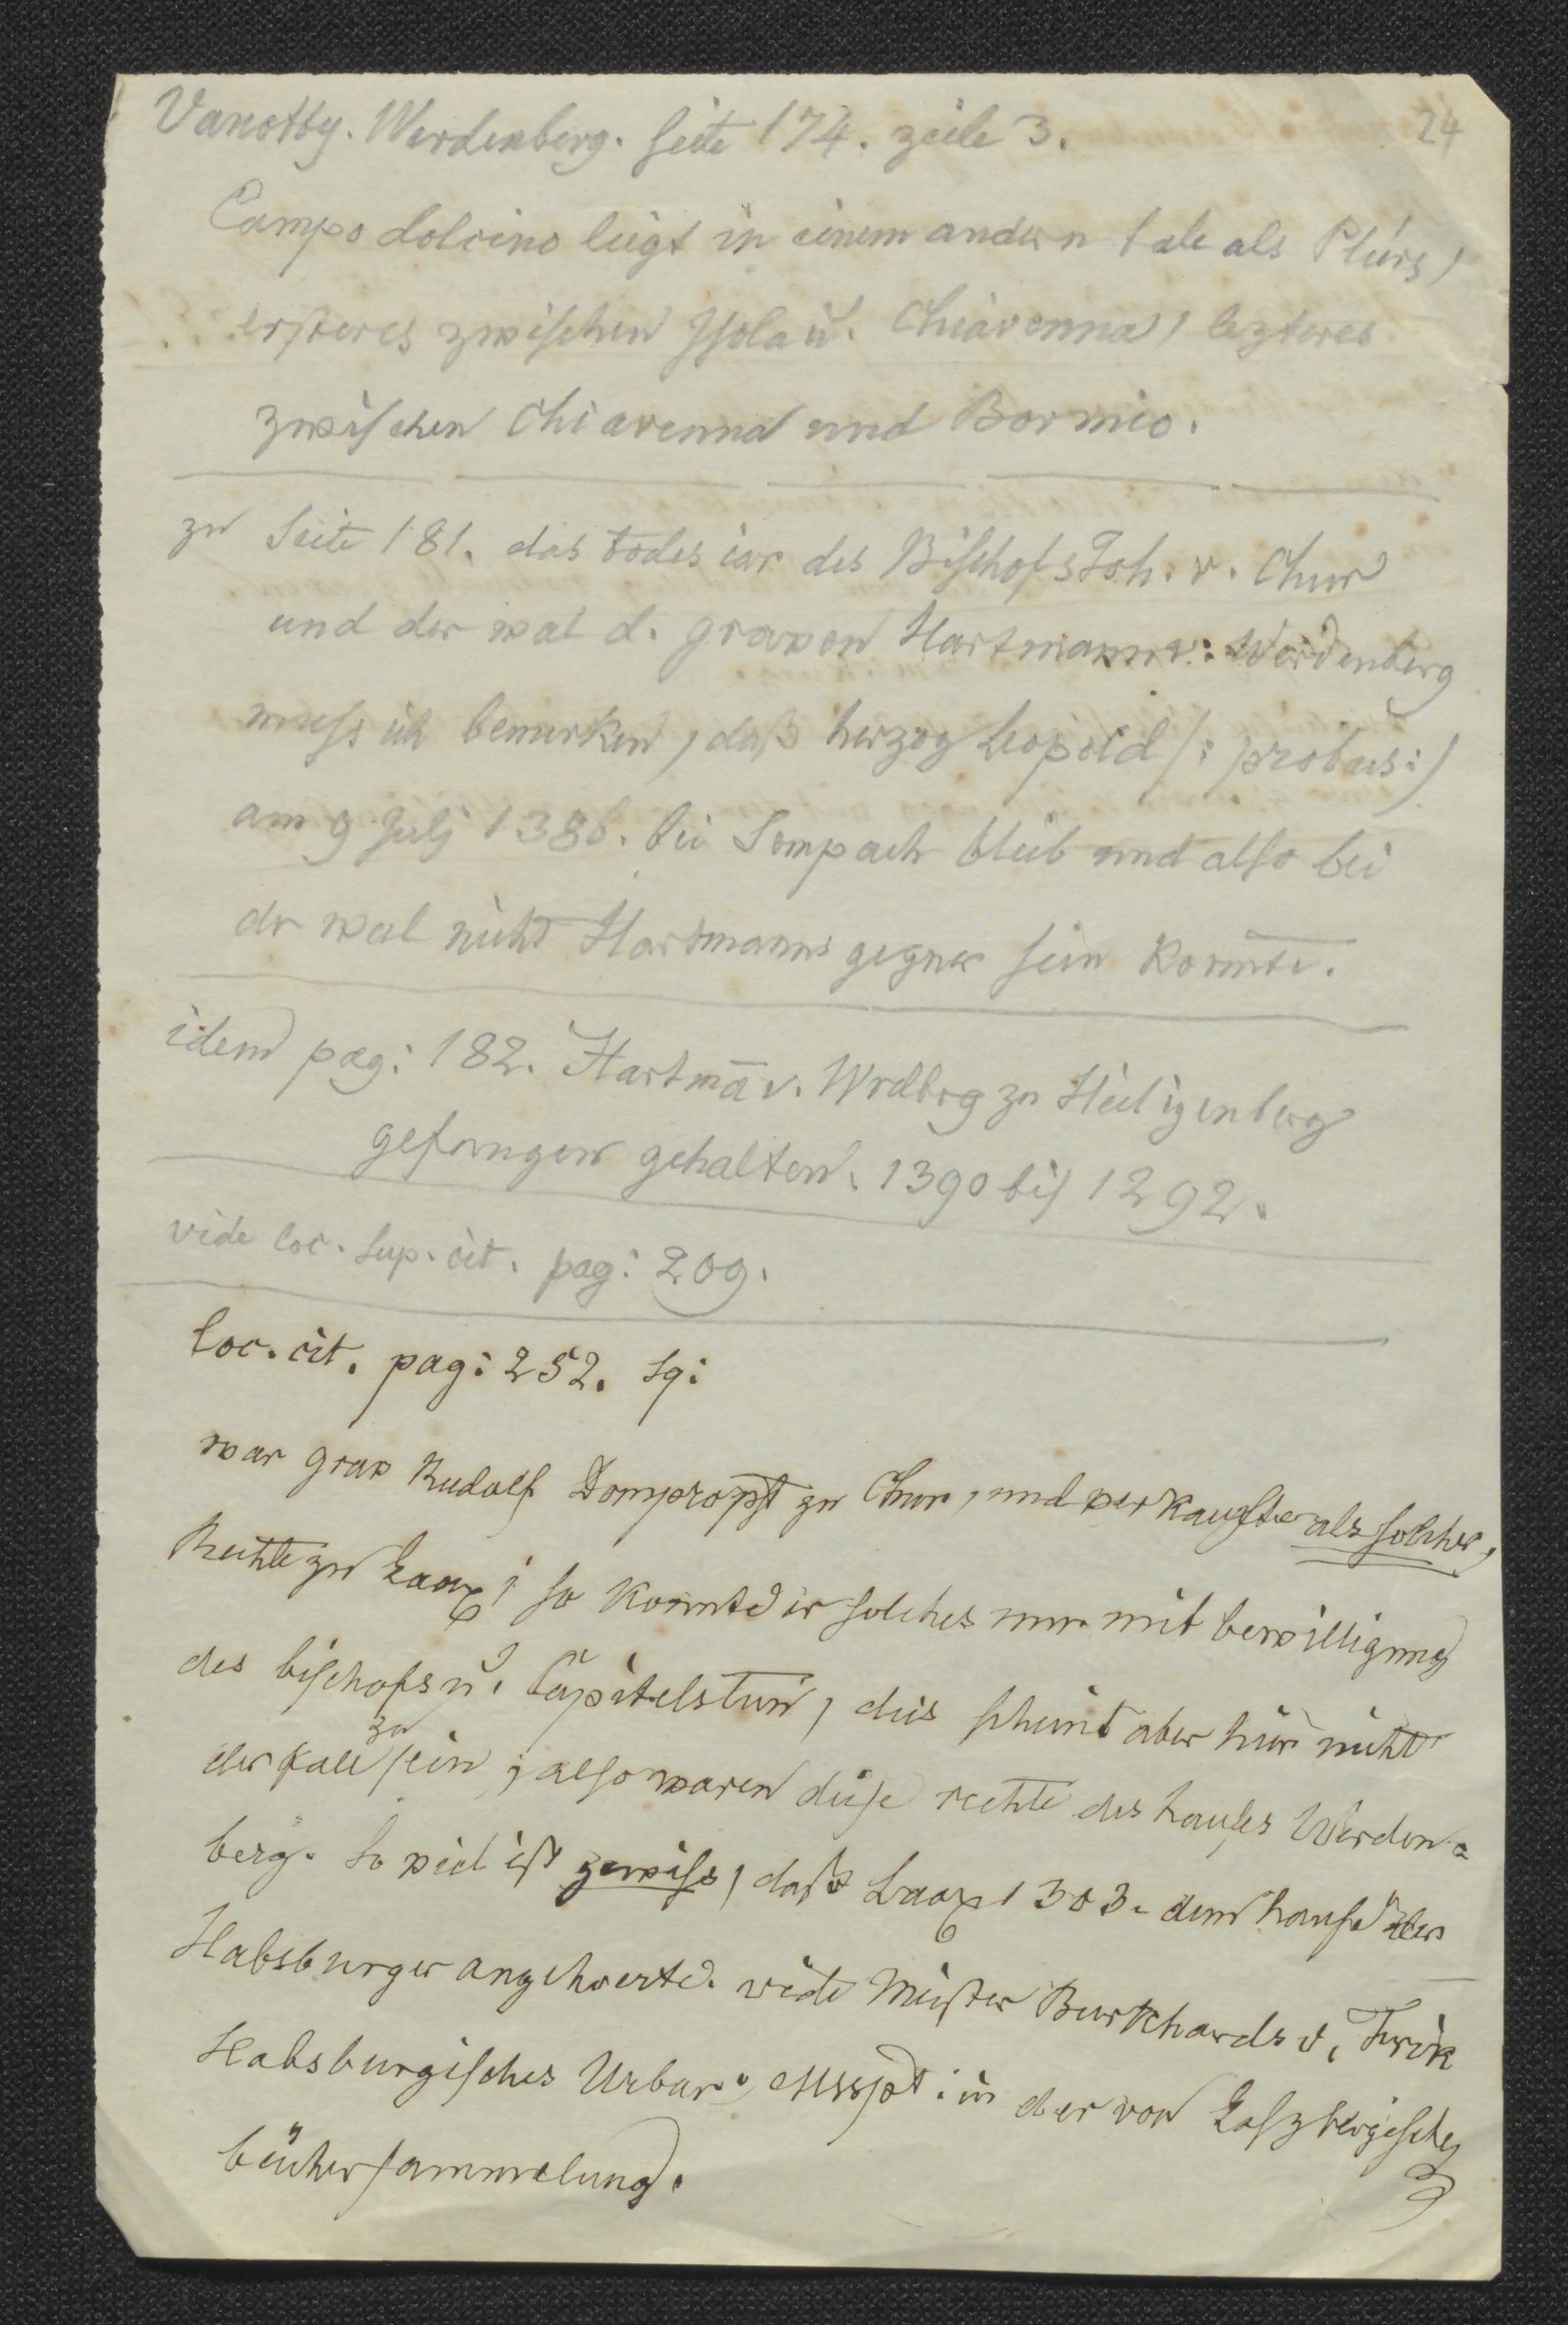 24
Vanotty. Werdenberg. seite 174. zeile 3.
Campo dolcino liegt in einem andern tale als Plürs,
ersteres zwischen Isola u. Chiavenna, lezteres
zwischen Chiavenna und Bormio.
zu Seite 181. das todes iar des Bischofs Joh. v. Chur
und der wal d. graven Hartmann v: Werdenberg
muss ich bemerken, daß herzog Leopold /: probus:/
am 9 Julj 1386. bei Sempach blieb und also bei
der wal nicht Hartmanns gegner sein konnte.
idem pag: 182. Hartmā v. Wrdbrg zu Heiligenberg
gefangen gehalten. 1390 bis 1292.
vide loc. sup. cit. pag: 209.
loc. cit. pag: 252. sq:
war grav Rudolf Dompropst zu Chur, und verkaufte als solcher,
Rechte zu Laax; so konnte er solches nur mit bewilligung
des bischofs u. Capitels tun, dies scheint aber hier nicht
der fall zu sein, also waren diese rechte des hauses Werden=
berg. So viel ist gewiss, daß Laax 1303. dem hause der
Habsburger angehoerte. vide Meister Burkhards v. Frik
Habsburgisches Urbar. Msspt: in der von Laszbergischen
büchersammelung.